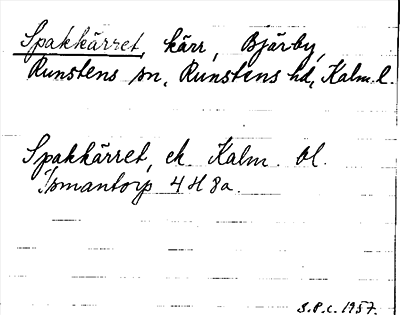 Spakkärret, kärr, Bjärby,
Runstens sn, Runstens hd, Kalm. l.
Spakkärret, ek Kalm. bl.
Ismantorp 4 H 8a.
S.P.C. 1957.